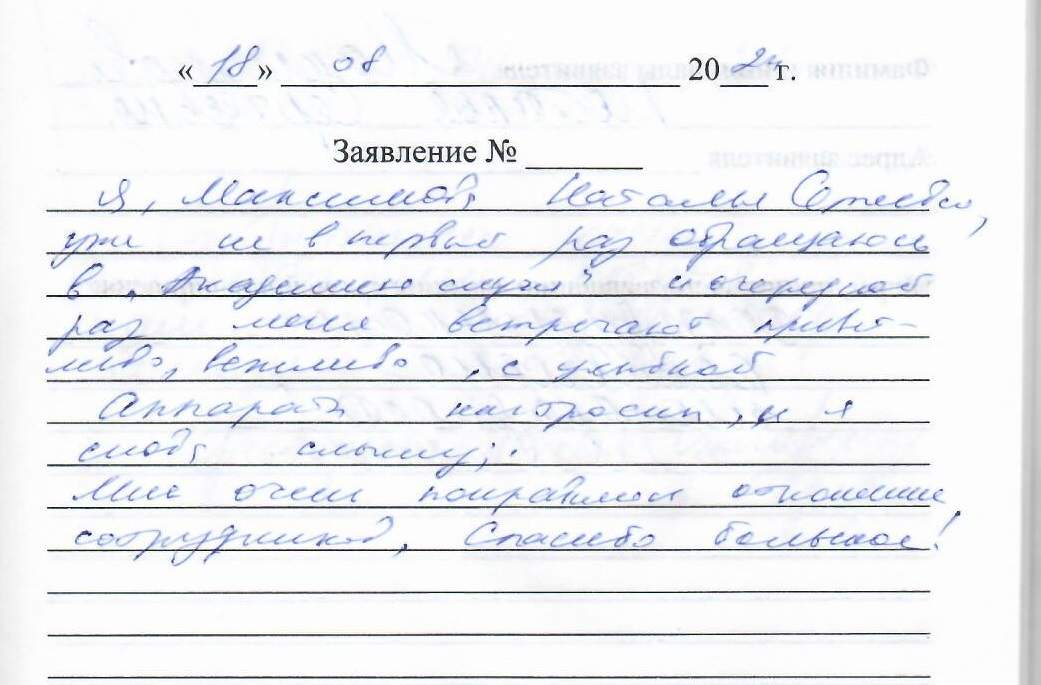 « 18 » 08 2024 г.
Заявление №
Я, Максимова Наталья Сергеевна,
уже не в первый раз обращаюсь
в „Академию слуха" и очередной
раз меня встречают привет-
ливо, вежливо, с улыбкой
Аппараты настроены, и я
снова слышу.
Мне очень понравилось отношение
сотрудников, Спасибо большое!